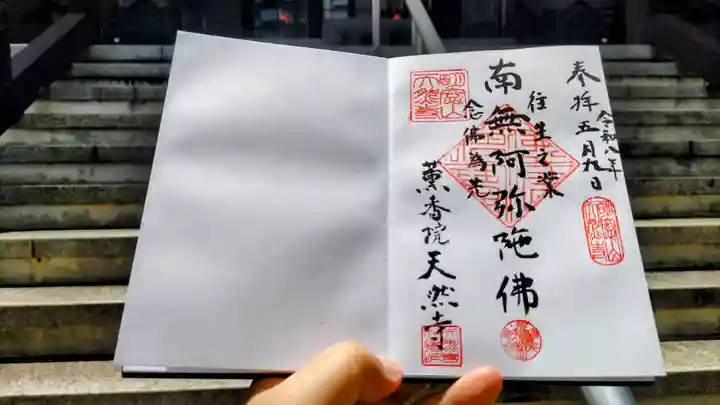 奉拝 五月九日
令和八年
往生之業
南無阿弥陀佛
念佛為先
薫香院 天然寺